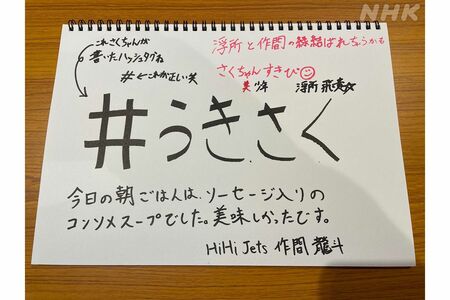 NHK
これさくちゃんが
書いたハッシュタグね
#←これが正しい笑
浮所と作間の縁結ばれちゃうかも
さくちゃんすきぴ
美 少年 浮所 飛貴
#うきさく
今日の朝ごはんは、ソーセージ入りの
コンソメスープでした。美味しかったです。
HiHi Jets 作間 龍斗